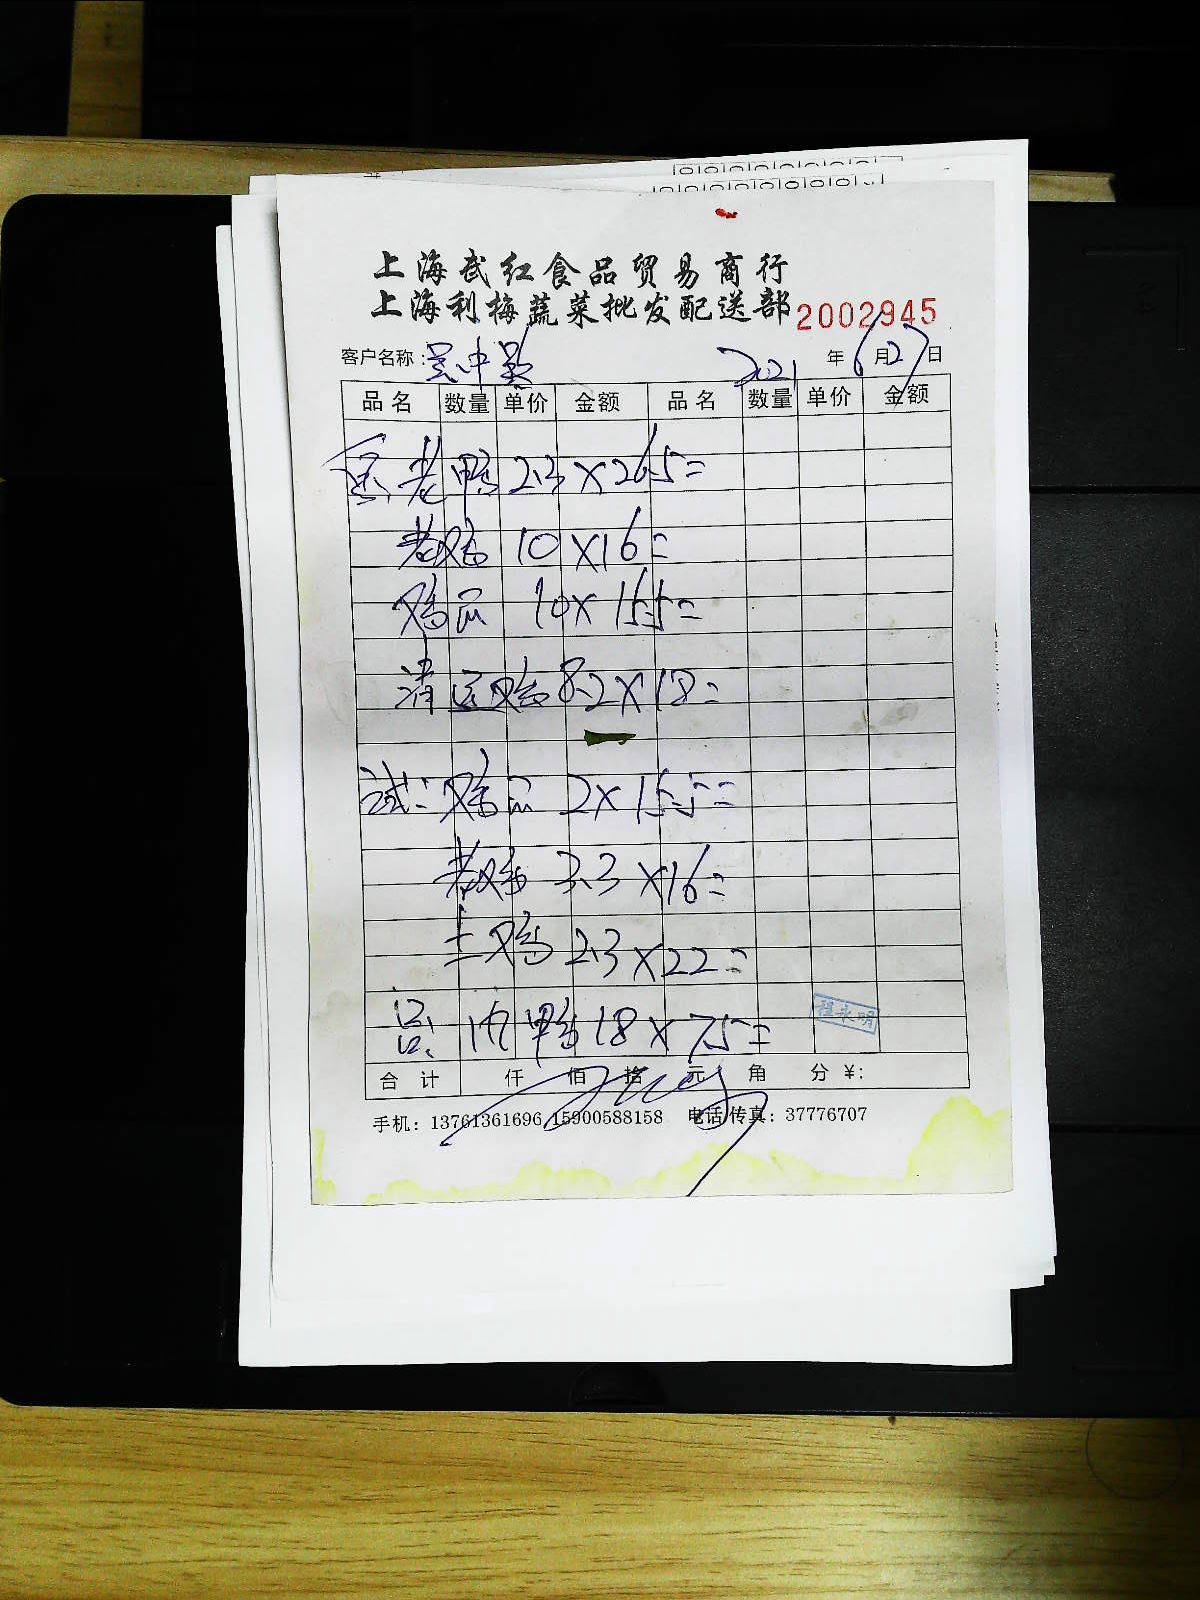 上海武红食品贸易商行
上海利梅蔬菜批发配送部 2002945
客户名称: 2021 年 6 月 27 日
品名 数量 单价 金额 品名 数量 单价 金额
老鸭 2.3×26.5=
老鸡 10×16=
鸡 10×15.5=
清远鸡 8.2×18=
试: 鸡 2×15.5=
老鸡 3.3×16=
土鸡 2.3×22=
鸭 18×7.5=
程永明
合计 仟 佰 拾 元 角 分 ¥:
手机: 13761361696 15900588158 电话/传真: 37776707